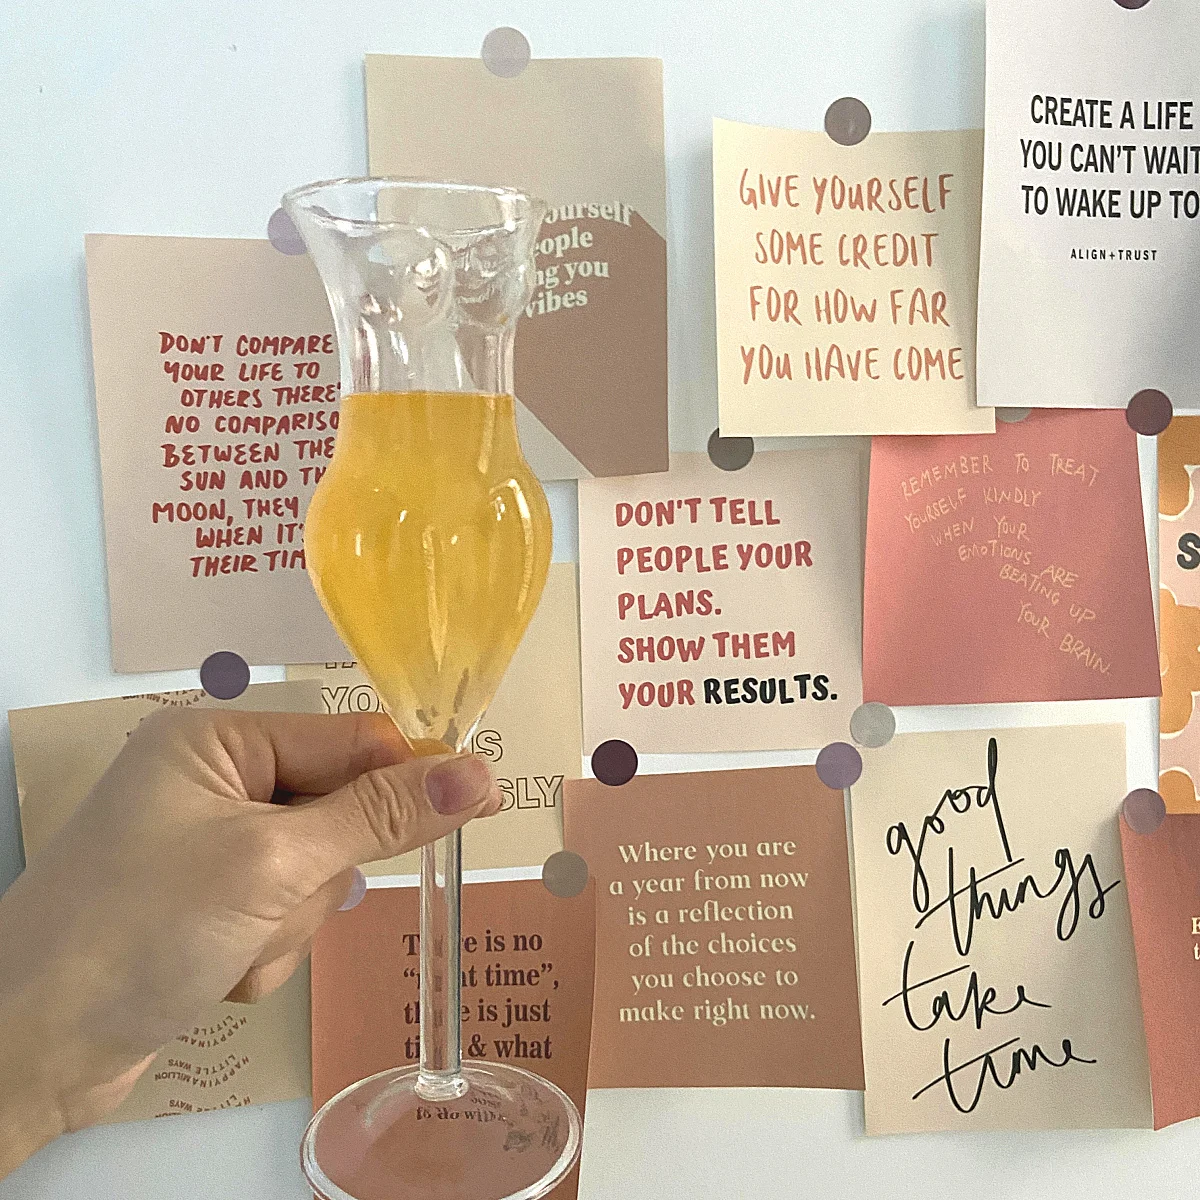 ourself
eople
ng you
vibes
GIVE YOURSELF
SOME CREDIT
FOR HOW FAR
YOU HAVE COME
CREATE A LIFE
YOU CAN'T WAIT
TO WAKE UP TO
ALIGN+TRUST
DON'T COMPARE
YOUR LIFE TO
OTHERS THERE'
NO COMPARISO
BETWEEN THE
SUN AND TH
MOON, THEY
WHEN IT'
THEIR TIM
DON'T TELL
PEOPLE YOUR
PLANS.
SHOW THEM
YOUR RESULTS.
REMEMBER TO TREAT
YOURSELF KINDLY
WHEN YOUR
EMOTIONS ARE
BEATING UP
YOUR BRAIN
S
YO
IS
SLY
Where you are
a year from now
is a reflection
of the choices
you choose to
make right now.
good
things
take
time
T e is no
t time”,
th e is just
ti & what
to do with
HAPPYINAMILLION
LITTLE WAYS
HAPPYINAMILLION
LITTLE WAYS